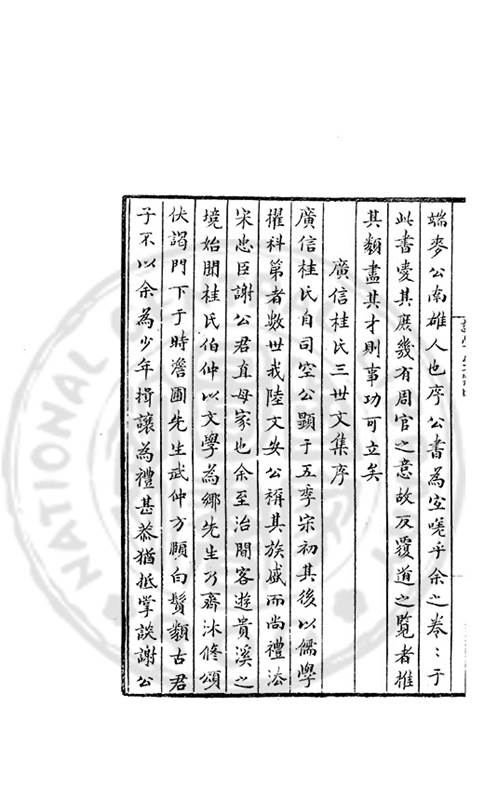 端麥公南雄人也序公書為空嗟乎余之眷：于
此書愛其庶幾有周官之意故反覆道之覽者推
其類盡其才則事功可立矣
廣信桂氏三世文集序
廣信桂氏自司空公顯于五季宋初其後以儒學
擢科第者數世我陸文安公稱其族盛而尚禮法
宋忠臣謝公君直母家也余至治間客遊貴溪之
境始聞桂氏伯仲以文學為鄉先生乃齋沐修頌
伏謁門下于時澹圃先生武仲方頤白鬚類古君
子不以余為少年揖讓為禮甚恭猶抵掌談謝公
NATIONAL